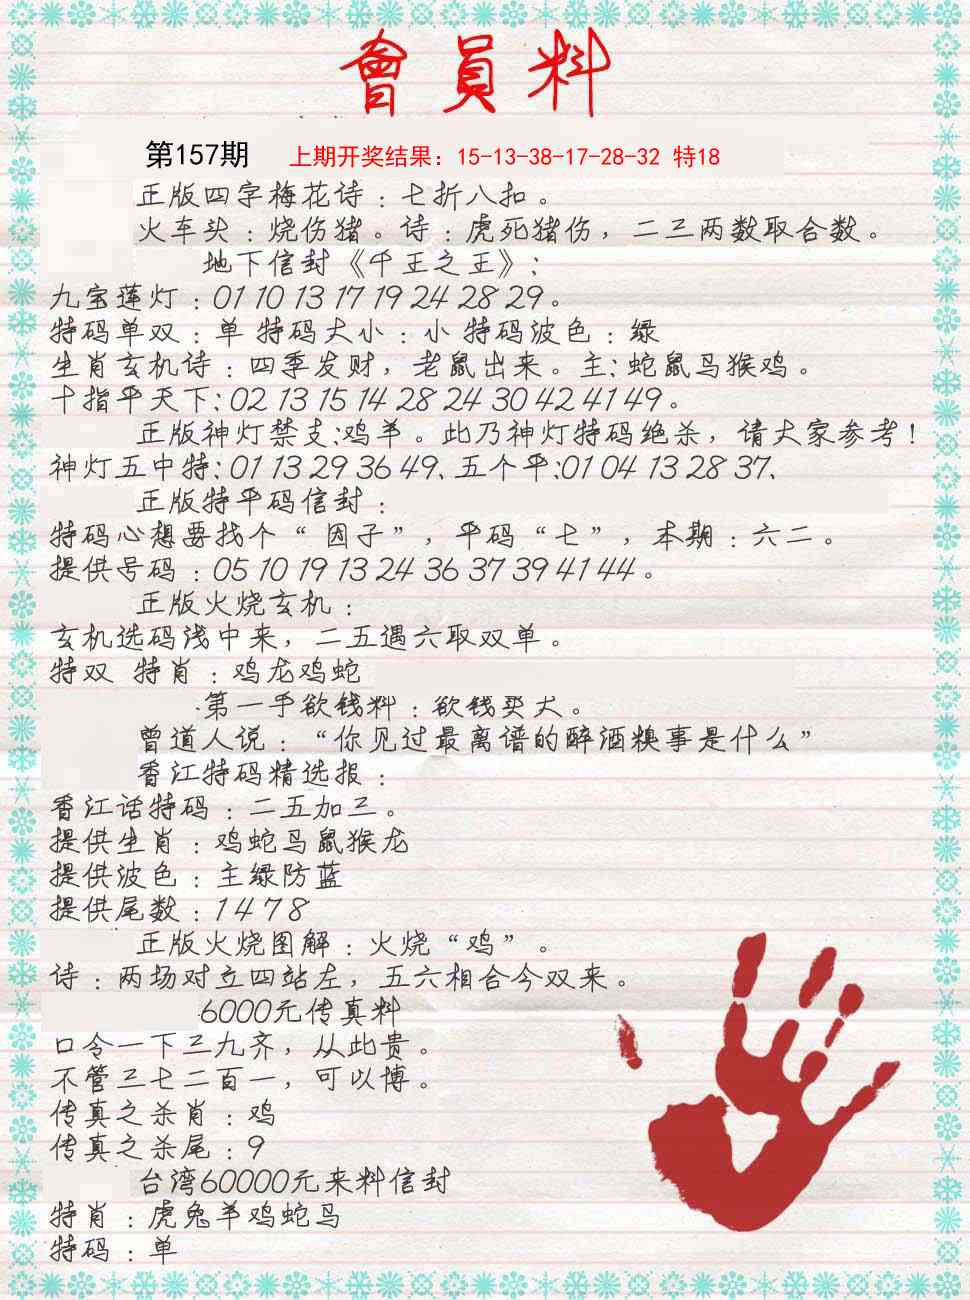 會員料
第157期 上期开奖结果：15-13-38-17-28-32 特18
正版四字梅花诗：七折八扣。
火车头：烧伤猪。诗：虎死猪伤，二三两数取合数。
地下信封《千王之王》：
九宝莲灯：01 10 13 17 19 24 28 29。
特码单双：单 特码大小：小 特码波色：绿
生肖玄机诗：四季发财，老鼠出来。主：蛇鼠马猴鸡。
十指平天下：02 13 15 14 28 24 30 42 41 49。
正版神灯禁支：鸡羊。此乃神灯特码绝杀，请大家参考！
神灯五中特：01 13 29 36 49、五个平：01 04 13 28 37、
正版特平码信封：
特码心想要找个“因子”，平码“七”，本期：六二。
提供号码：05 10 19 13 24 36 37 39 41 44。
正版火烧玄机：
玄机选码浅中来，二五遇六取双单。
特双 特肖：鸡龙鸡蛇
第一手欲钱料：欲钱买犬。
曾道人说：“你见过最离谱的醉酒糗事是什么”
香江特码精选报：
香江话特码：二五加三。
提供生肖：鸡蛇马鼠猴龙
提供波色：主绿防蓝
提供尾数：1 4 7 8
正版火烧图解：火烧“鸡”。
诗：两场对立四站左，五六相合今双来。
6000元传真料
口令一下三九齐，从此贵。
不管三七二百一，可以博。
传真之杀肖：鸡
传真之杀尾：9
台湾60000元来料信封
特肖：虎兔羊鸡蛇马
特码：单